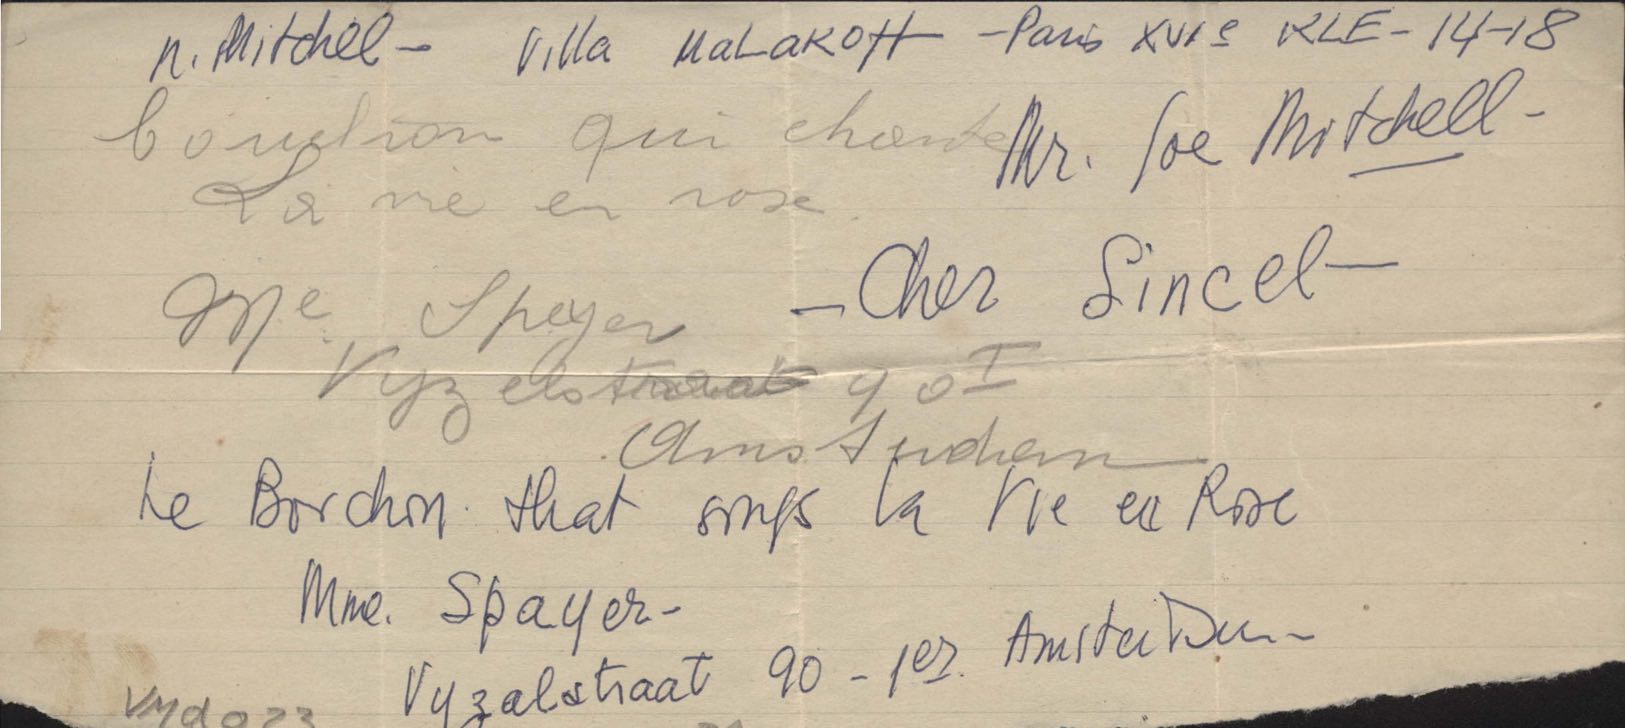 n. Mitchel - Villa MALAKOff - Paris XVIe KLE - 14-18
bouchon qui chante
Mr. Joe Mitchell -
La vie en rose.
- Cher Lincel -
Me Speyer
Vyzelstraat 90 I
Amsterdam
Le Borchon that sings la Vie en Rose
Mme. Spayer -
Vyzalstraat 90 - 1er. Amsterdam -